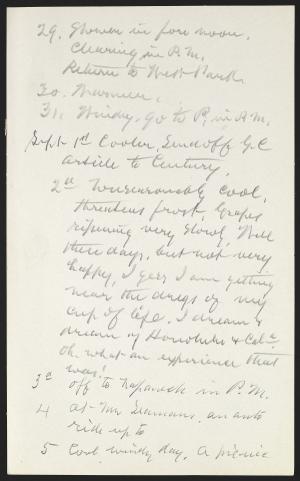 29. Shower in fore noon.
Clearing in P.M.
Return to West Park.
30. Warmer.
31. Windy. go to P. in P.M.
Sept 1st Cooler, Send off G.C
article to Century,
2d Unseasonably cool,
threatens frost, Grapes
ripening very slowly, Well
these days, but not very
happy, I guess I am getting
near the dregs of my
cup of life. I dream &
dream of Honolulu & Cala.
Oh what an experience that
was!
3d off to Napanoch in P.M.
4 at Mr Seamans, an auto
ride up to
5 Cool windy day. A picnic